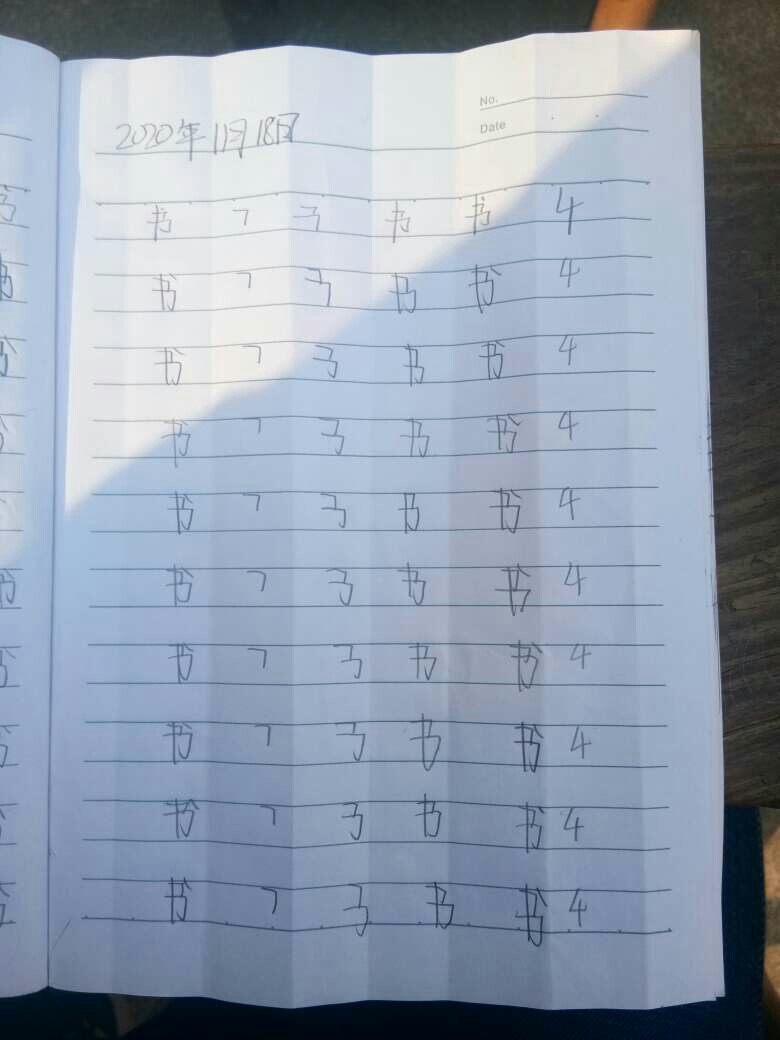 No.
2020年11月18日
Date
书 ㇕ 马 书 书 4
书 ㇕ 马 书 书 4
书 ㇕ 马 书 书 4
书 ㇕ 马 书 书 4
书 ㇕ 马 书 书 4
书 ㇕ 马 书 书 4
书 ㇕ 马 书 书 4
书 ㇕ 马 书 书 4
书 ㇕ 马 书 书 4
书 ㇕ 马 书 书 4